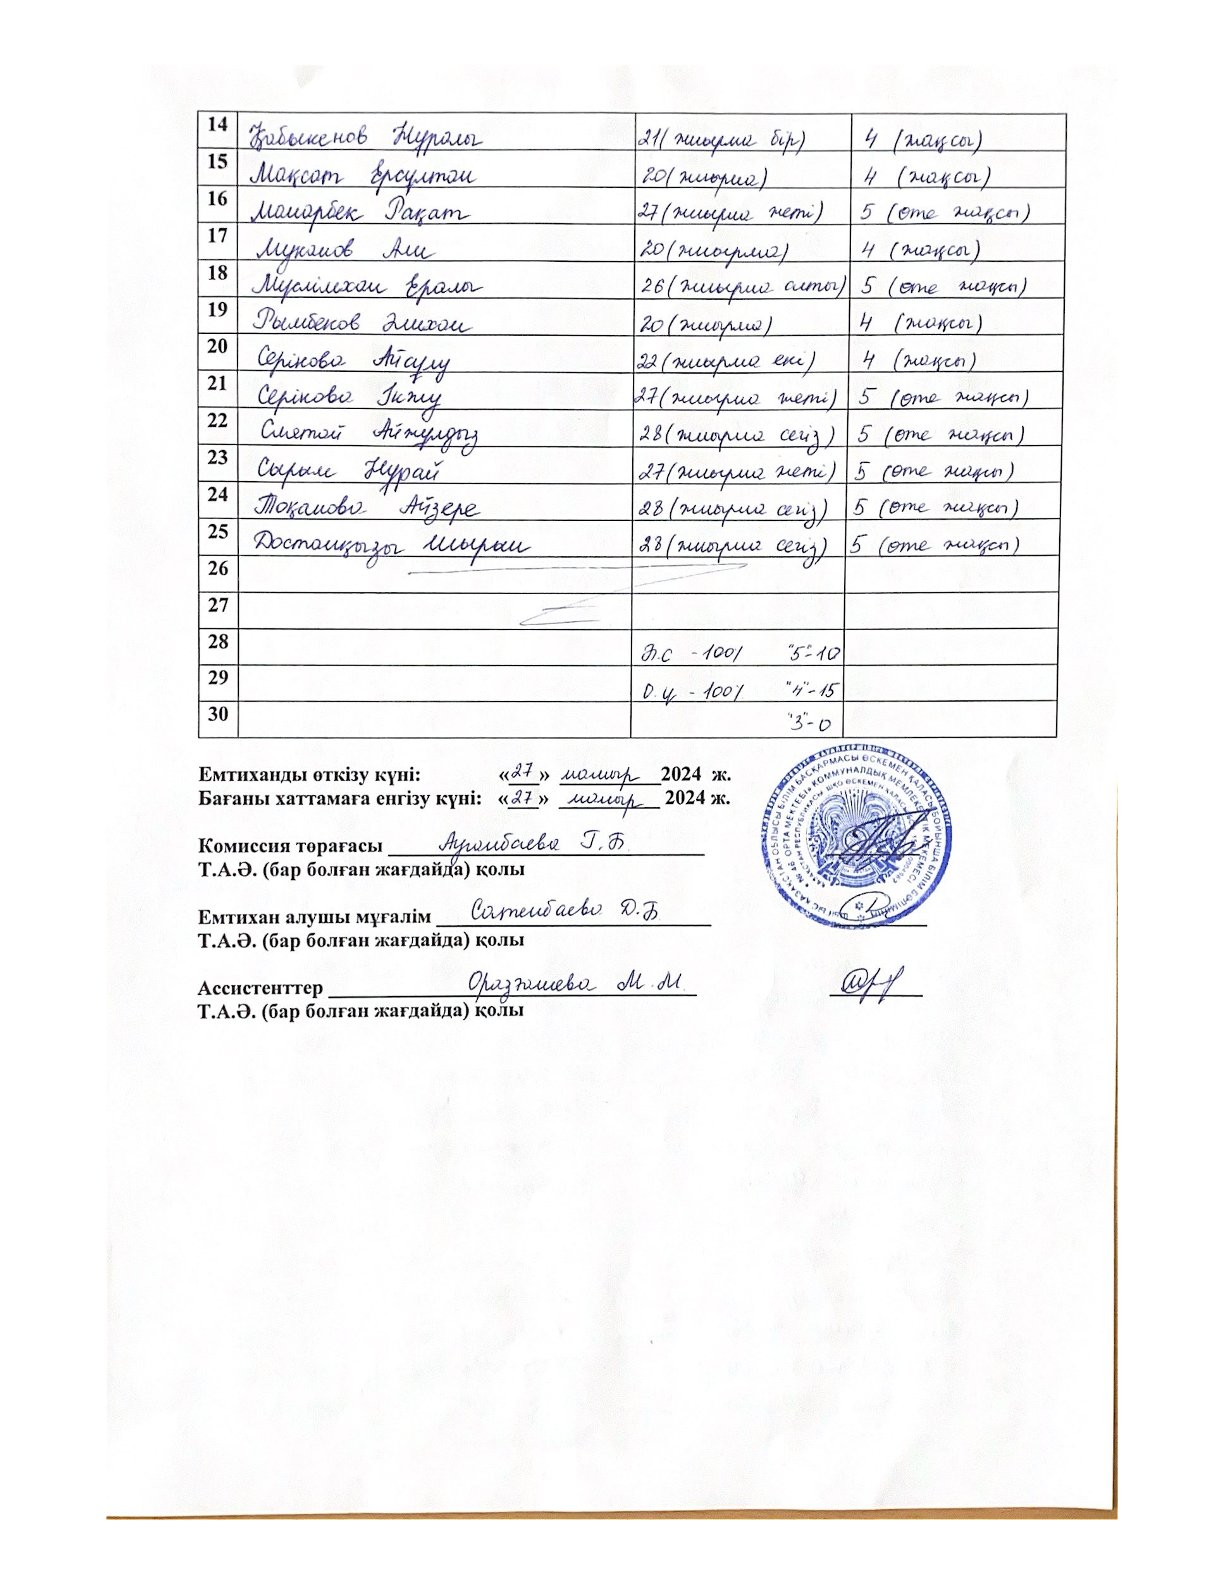 14 Қабыкенов Нұралы 21(жиырма бір) 4 (жақсы)
15 Мақсат Ерсұлтан 20(жиырма) 4 (жақсы)
16 Манарбек Рақат 27(жиырма жеті) 5 (өте жақсы)
17 Муканов Али 20(жиырма) 4 (жақсы)
18 Мүслімхан Ералы 26(жиырма алты) 5 (өте жақсы)
19 Рымбеков Әлихан 20(жиырма) 4 (жақсы)
20 Серікова Айсұлу 22(жиырма екі) 4 (жақсы)
21 Серікова Інжу 27(жиырма жеті) 5 (өте жақсы)
22 Сматай Айжұлдыз 28(жиырма сегіз) 5 (өте жақсы)
23 Сырым Нұрай 27(жиырма жеті) 5 (өте жақсы)
24 Тоқанова Айзере 28(жиырма сегіз) 5 (өте жақсы)
25 Достанқызы Шырын 28(жиырма сегіз) 5 (өте жақсы)
26
27
28 Б.с - 100% "5"-10
29 О.ү - 100% "4"-15
30 "3"-0
Емтиханды өткізу күні: «27» мамыр 2024 ж.
Бағаны хаттамаға енгізу күні: «27» мамыр 2024 ж.
Комиссия төрағасы Ауганбаева Г.Б
Т.А.Ә. (бар болған жағдайда) қолы
Емтихан алушы мұғалім Сатенбаева Д.Б
Т.А.Ә. (бар болған жағдайда) қолы
Ассистенттер Оразғалиева М.М.
Т.А.Ә. (бар болған жағдайда) қолы